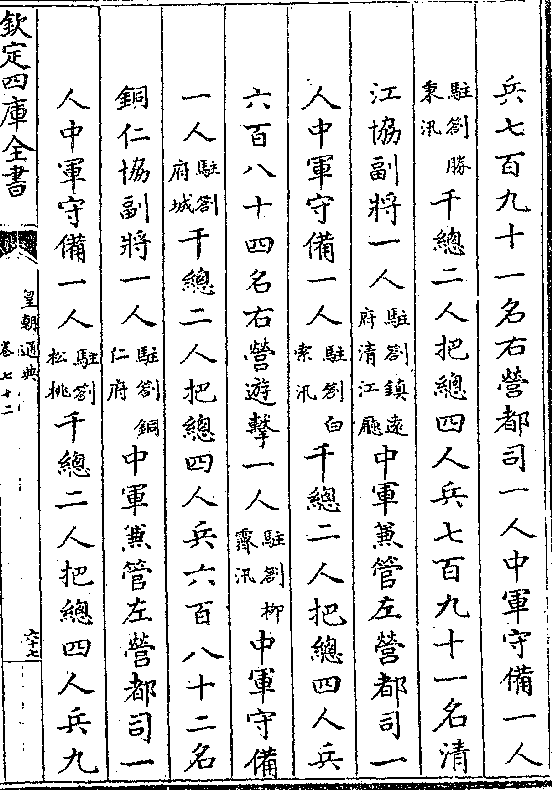 兵七百九十一名右營都司一人中軍守備一人
駐劄勝秉汛千總二人把總四人兵七百九十一名清
江協副將一人駐劄鎮遠府清江廳中軍兼管左營都司一
人中軍守備一人駐劄白索汛千總二人把總四人兵
六百八十四名右營遊擊一人駐劄柳霽汛中軍守備
一人駐劄府城千總二人把總四人兵六百八十二名
銅仁協副將一人駐劄銅仁府中軍兼管左營都司一
人中軍守備一人駐劄松桃千總二人把總四人兵九
欽定四庫全書
皇朝通典
卷七十二